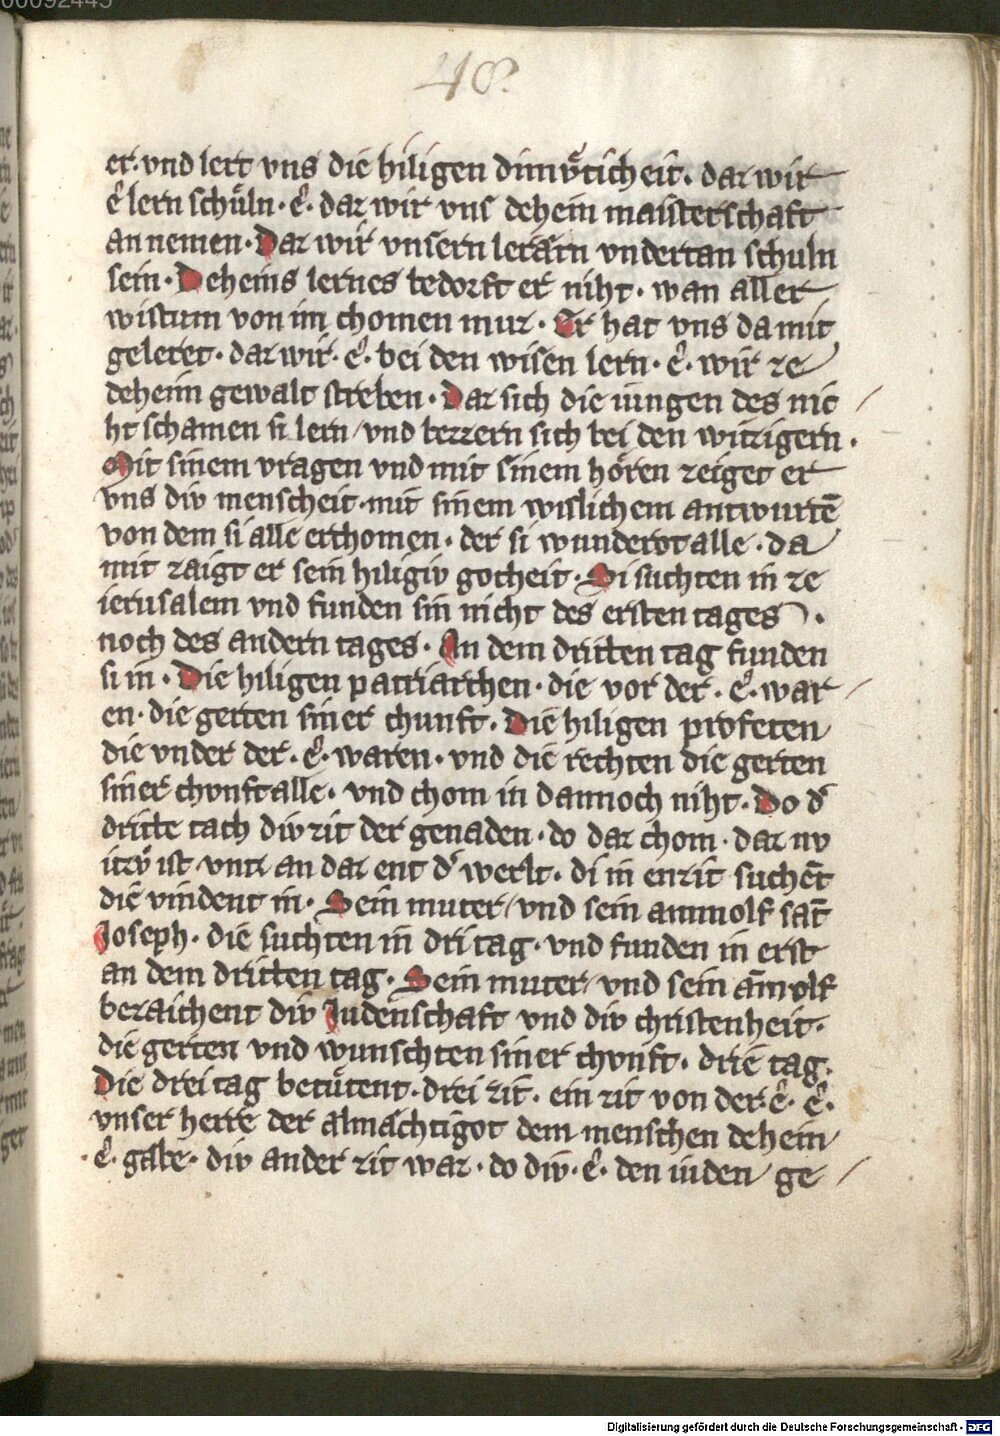 00092445
48.
er. vnd lert vns die hiligen dimvͤticheit. daz wir
ê lern schuͤln · ê · daz wir vns dehein maisterschaft
an nemen · Daz wir vnsern lerarn vndertan schuln
sein · Deheins lernes bedorft er niht · wan aller
wistum von im chomen muz · Er hat vns da mit
geleret · daz wir · ê · bei den wisen lern · ê · wir ze
deheim gewalt streben · Daz sich die iungen des nic
ht schamen si lern / vnd bezzern sich bei den witzigern ·
Mit sinem vragen vnd mit sinem hoͤren zeiget er
vns div menscheit · mit sinem wislichem antwurtē
von dem si alle erchomen · der si wundervt alle · da
mit zaigt er sein hiligiv gotheit · Si suchten in ze
ierusalem vnd funden sin nicht des ersten tages ·
noch des andern tages · An dem dritten tag funden
si in · Die hiligen patriarchen · die vor der · ê · war
en · die gerten siner chunft · Die hiligen profeten
die vnder der · ê · waren · vnd die rechten die gerten
siner chvnft alle · vnd chom in dannoch niht · Do d'
dritte tach div zit der genaden · do daz chom · daz nv
itzv ist vntz an daz ent d' werlt · di in enzit suchēt
die vindent in · Sein muter / vnd sein ammolf sāt
Joseph · die suchten in dri tag · vnd funden in erst
an dem dritten tag · Sein muter / vnd sein āmolf
bezaichent div Judenschaft vnd div christenheit ·
die gerten vnd wunschten siner chvnft · drie tag ·
Die drei tag betuͤtent · drei zit · ein zit von der · ê · ê ·
vnser herre der almachtigot dem menschen dehein
· ê · gabe · div ander zit waz · do div · ê · den iuden ge
Digitalisierung gefördert durch die Deutsche Forschungsgemeinschaft - DFG